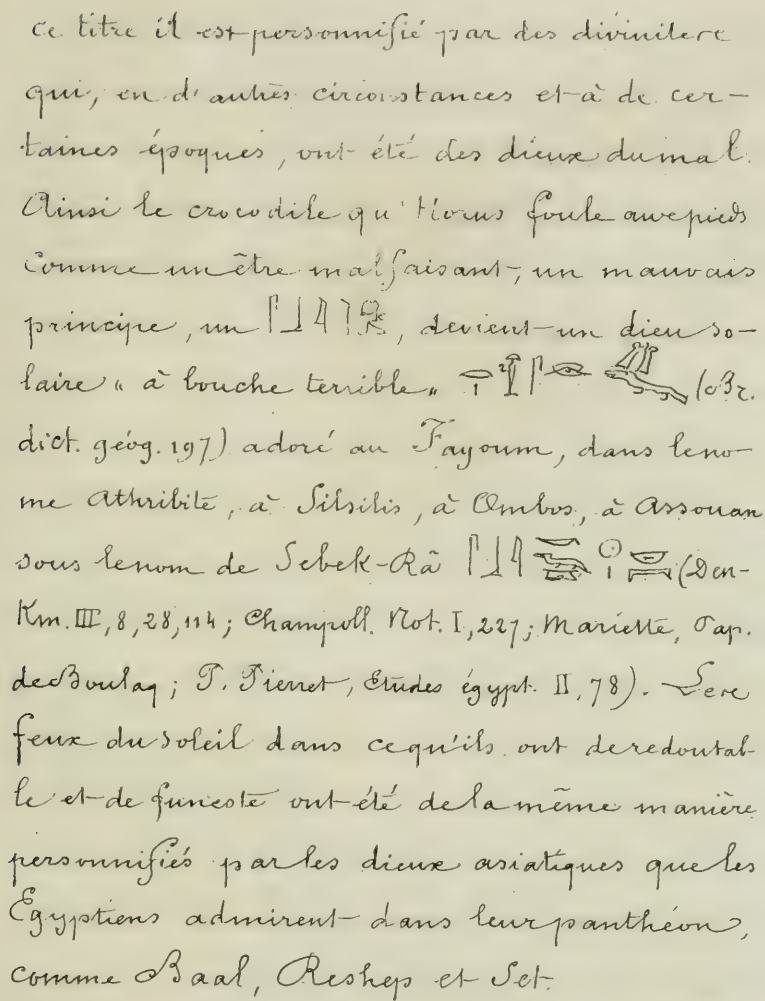 ce titre il est personnifié par des divinités
qui, en d'autres circonstances et à de cer-
taines époques, ont été des dieux du mal.
Ainsi le crocodile qu'Horus foule aux pieds
comme un être malfaisant, un mauvais
principe, un , devient un dieu so-
laire « à bouche terrible » (Br.
dict. géog. 197) adoré au Fayoum, dans le no-
me Athribite, à Silsilis, à Ombos, à Assouan
sous le nom de Sebek-Râ (Den-
Km. III, 8, 28, 114; Champoll. Not. I, 227; Mariette, Pap.
de Boulaq; P. Pierret, Etudes égypt. II, 78). Les
feux du soleil dans ce qu'ils ont de redouta-
ble et de funeste ont été de la même manière
personnifiés par les dieux asiatiques que les
Egyptiens admirent dans leur panthéon,
comme Baal, Reshep et Set.